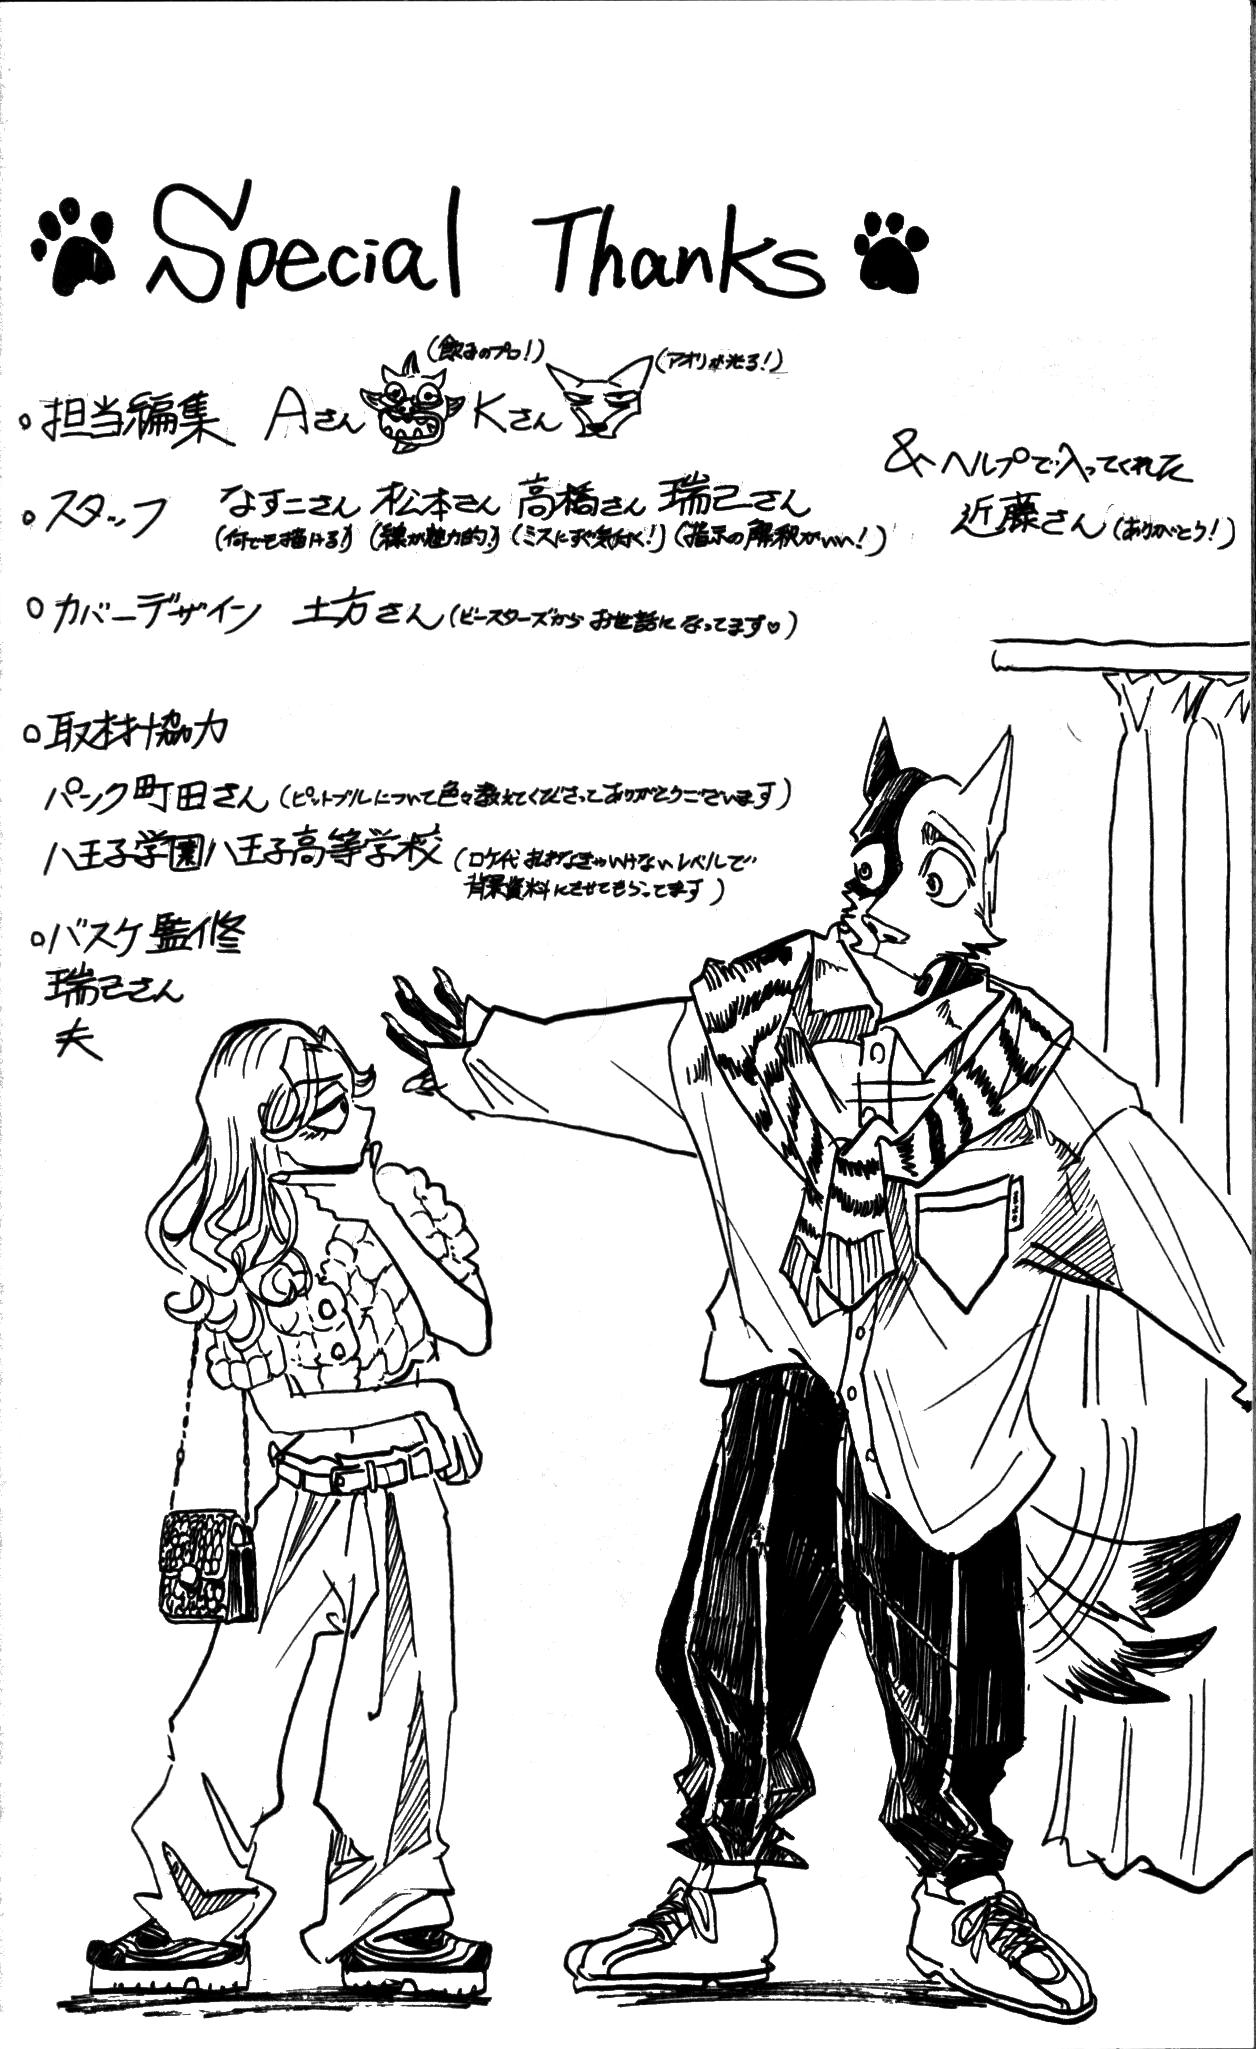 Special Thanks
(飲みのプロ!)
(アオリが光る!)
。担当編集 Aさん Kさん
。スタッフ なすこさん 松本さん 高橋さん 瑞己さん
(何でも描ける!) (線が魅力的!) (ミスにすぐ気付く!) (指示の解釈がいい!)
&ヘルプで入ってくれた
近藤さん(ありがとう!)
。カバーデザイン 土方さん(ビースターズからお世話になってます♡)
。取材協力
パンク町田さん(ピットブルについて色々教えてくださってありがとうございます)
八王子学園八王子高等学校(ロケ代おはなきゃいけないレベルで
背景資料にさせてもらってます)
。バスケ監修
瑞己さん
夫